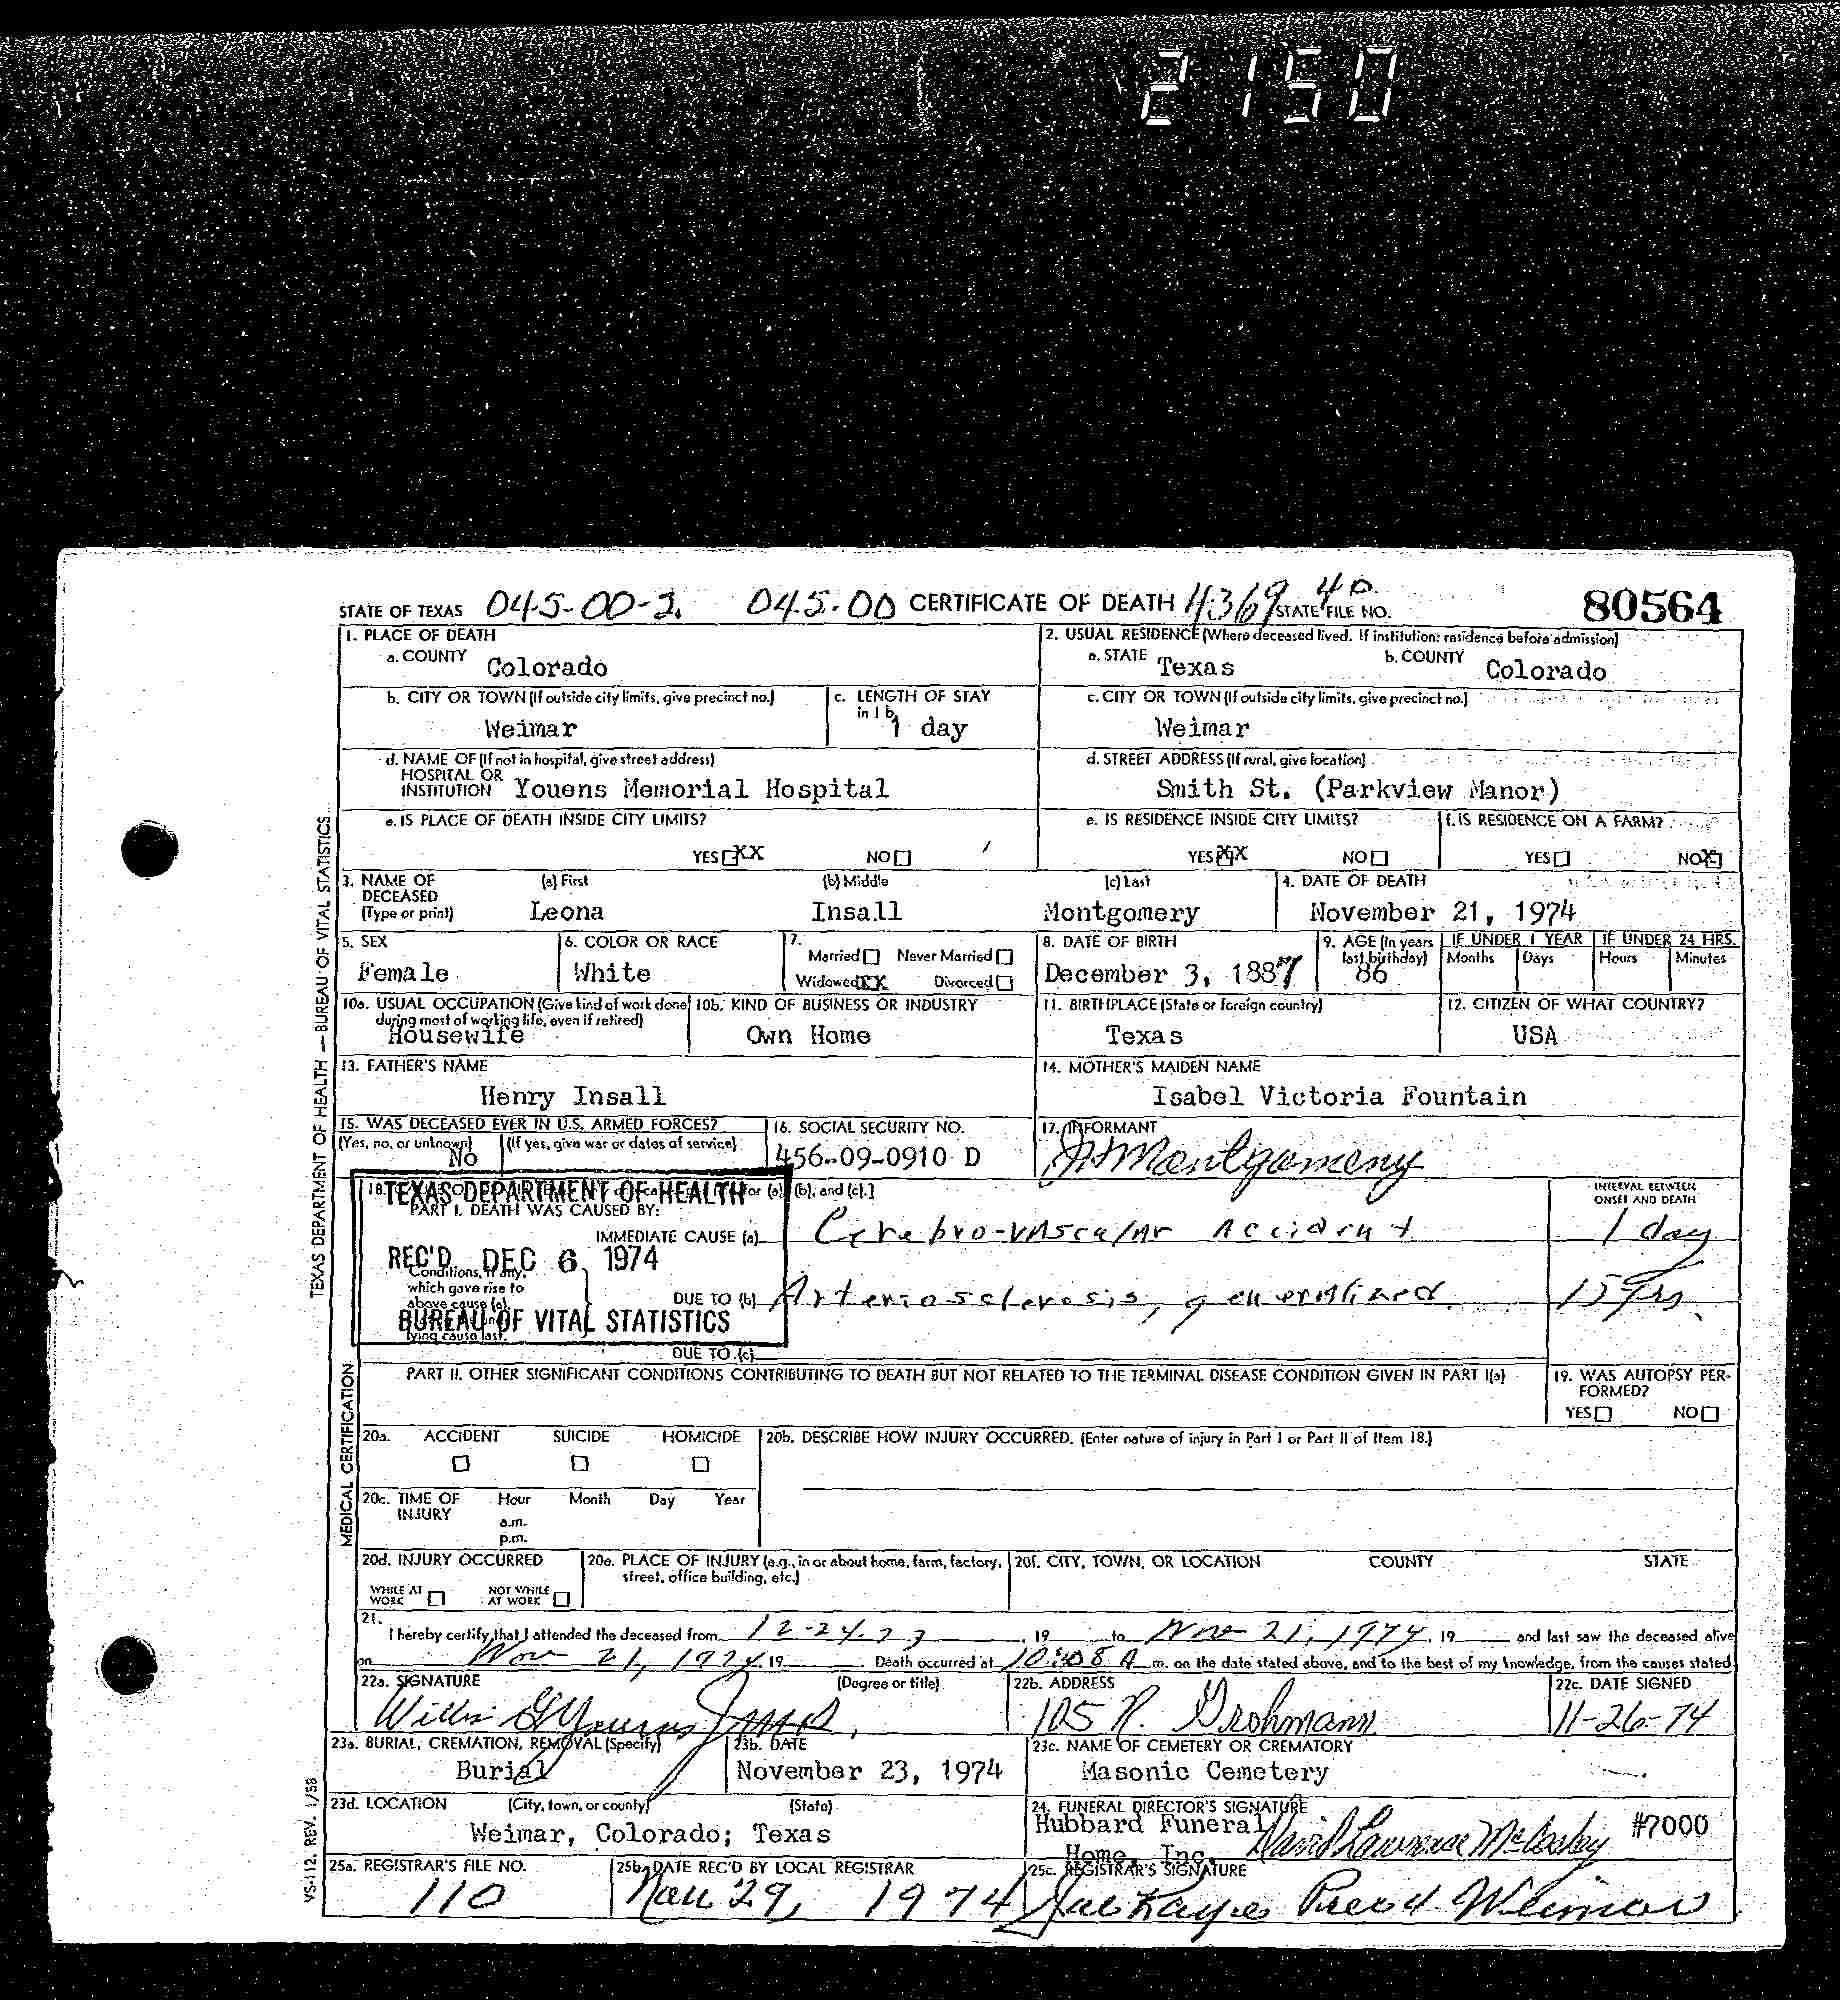 2150
STATE OF TEXAS 045-00-2. 045.00 CERTIFICATE OF DEATH 4369 40 STATE FILE NO. 80564
1. PLACE OF DEATH
a. COUNTY Colorado
2. USUAL RESIDENCE (Where deceased lived. If institution: residence before admission)
a. STATE Texas b. COUNTY Colorado
b. CITY OR TOWN (If outside city limits, give precinct no.) Weimar
c. LENGTH OF STAY in 1 b. 1 day
c. CITY OR TOWN (If outside city limits, give precinct no.) Weimar
d. NAME OF (If not in hospital, give street address)
HOSPITAL OR
INSTITUTION Youens Memorial Hospital
d. STREET ADDRESS (If rural, give location)
Smith St. (Parkview Manor)
e. IS PLACE OF DEATH INSIDE CITY LIMITS?
YES XX NO
e. IS RESIDENCE INSIDE CITY LIMITS?
YES XX NO
f. IS RESIDENCE ON A FARM?
YES NO X
3. NAME OF DECEASED (Type or print)
(a) First Leona
(b) Middle Insall
(c) Last Montgomery
4. DATE OF DEATH
November 21, 1974
5. SEX
Female
6. COLOR OR RACE
White
7. Married Never Married
Widowed XX Divorced
8. DATE OF BIRTH
December 3, 1887
9. AGE (In years last birthday)
86
IF UNDER 1 YEAR
Months Days
IF UNDER 24 HRS.
Hours Minutes
10a. USUAL OCCUPATION (Give kind of work done during most of working life, even if retired)
Housewife
10b. KIND OF BUSINESS OR INDUSTRY
Own Home
11. BIRTHPLACE (State or foreign country)
Texas
12. CITIZEN OF WHAT COUNTRY?
USA
13. FATHER'S NAME
Henry Insall
14. MOTHER'S MAIDEN NAME
Isabel Victoria Fountain
15. WAS DECEASED EVER IN U.S. ARMED FORCES?
(Yes, no, or unknown) No (If yes, give war or dates of service)
16. SOCIAL SECURITY NO.
456-09-0910 D
17. INFORMANT
Montgomery
18. TEXAS DEPARTMENT OF HEALTH or (a), (b), and (c).]
INTERVAL BETWEEN ONSET AND DEATH
PART I. DEATH WAS CAUSED BY:
IMMEDIATE CAUSE (a) Cerebro-vascular Accident 1 day
REC'D DEC 6 1974
Conditions, if any,
which gave rise to
above cause (a),
DUE TO (b) Arteriosclerosis, generalized 15 yrs.
BUREAU OF VITAL STATISTICS
lying cause last.
DUE TO (c)
PART II. OTHER SIGNIFICANT CONDITIONS CONTRIBUTING TO DEATH BUT NOT RELATED TO THE TERMINAL DISEASE CONDITION GIVEN IN PART I(a)
19. WAS AUTOPSY PERFORMED?
YES NO
20a. ACCIDENT SUICIDE HOMICIDE
20b. DESCRIBE HOW INJURY OCCURRED. (Enter nature of injury in Part I or Part II of Item 18.)
20c. TIME OF INJURY Hour Month Day Year
a.m.
p.m.
20d. INJURY OCCURRED
WHILE AT WORK NOT WHILE AT WORK
20e. PLACE OF INJURY (e.g., in or about home, farm, factory, street, office building, etc.)
20f. CITY, TOWN, OR LOCATION COUNTY STATE
21.
I hereby certify that I attended the deceased from 12-24-73, 19 to Nov 21, 1974, 19 and last saw the deceased alive
on Nov 21, 1974, 19 Death occurred at 10:08 A m. on the date stated above, and to the best of my knowledge, from the causes stated
22a. SIGNATURE (Degree or title)
Willis G Youens Jr MD,
22b. ADDRESS
105 N. Grohmann
22c. DATE SIGNED
11-26-74
23a. BURIAL, CREMATION, REMOVAL (Specify)
Burial
23b. DATE
November 23, 1974
23c. NAME OF CEMETERY OR CREMATORY
Masonic Cemetery
23d. LOCATION (City, town, or county) (State)
Weimar, Colorado; Texas
24. FUNERAL DIRECTOR'S SIGNATURE
Hubbard Funeral
Home, Inc. David Lawrence #7000
25a. REGISTRAR'S FILE NO.
110
25b. DATE REC'D BY LOCAL REGISTRAR
Nov 29, 1974
25c. REGISTRAR'S SIGNATURE
Prec 4 Weimar
TEXAS DEPARTMENT OF HEALTH — BUREAU OF VITAL STATISTICS
MEDICAL CERTIFICATION
VS-112, REV. 1/58